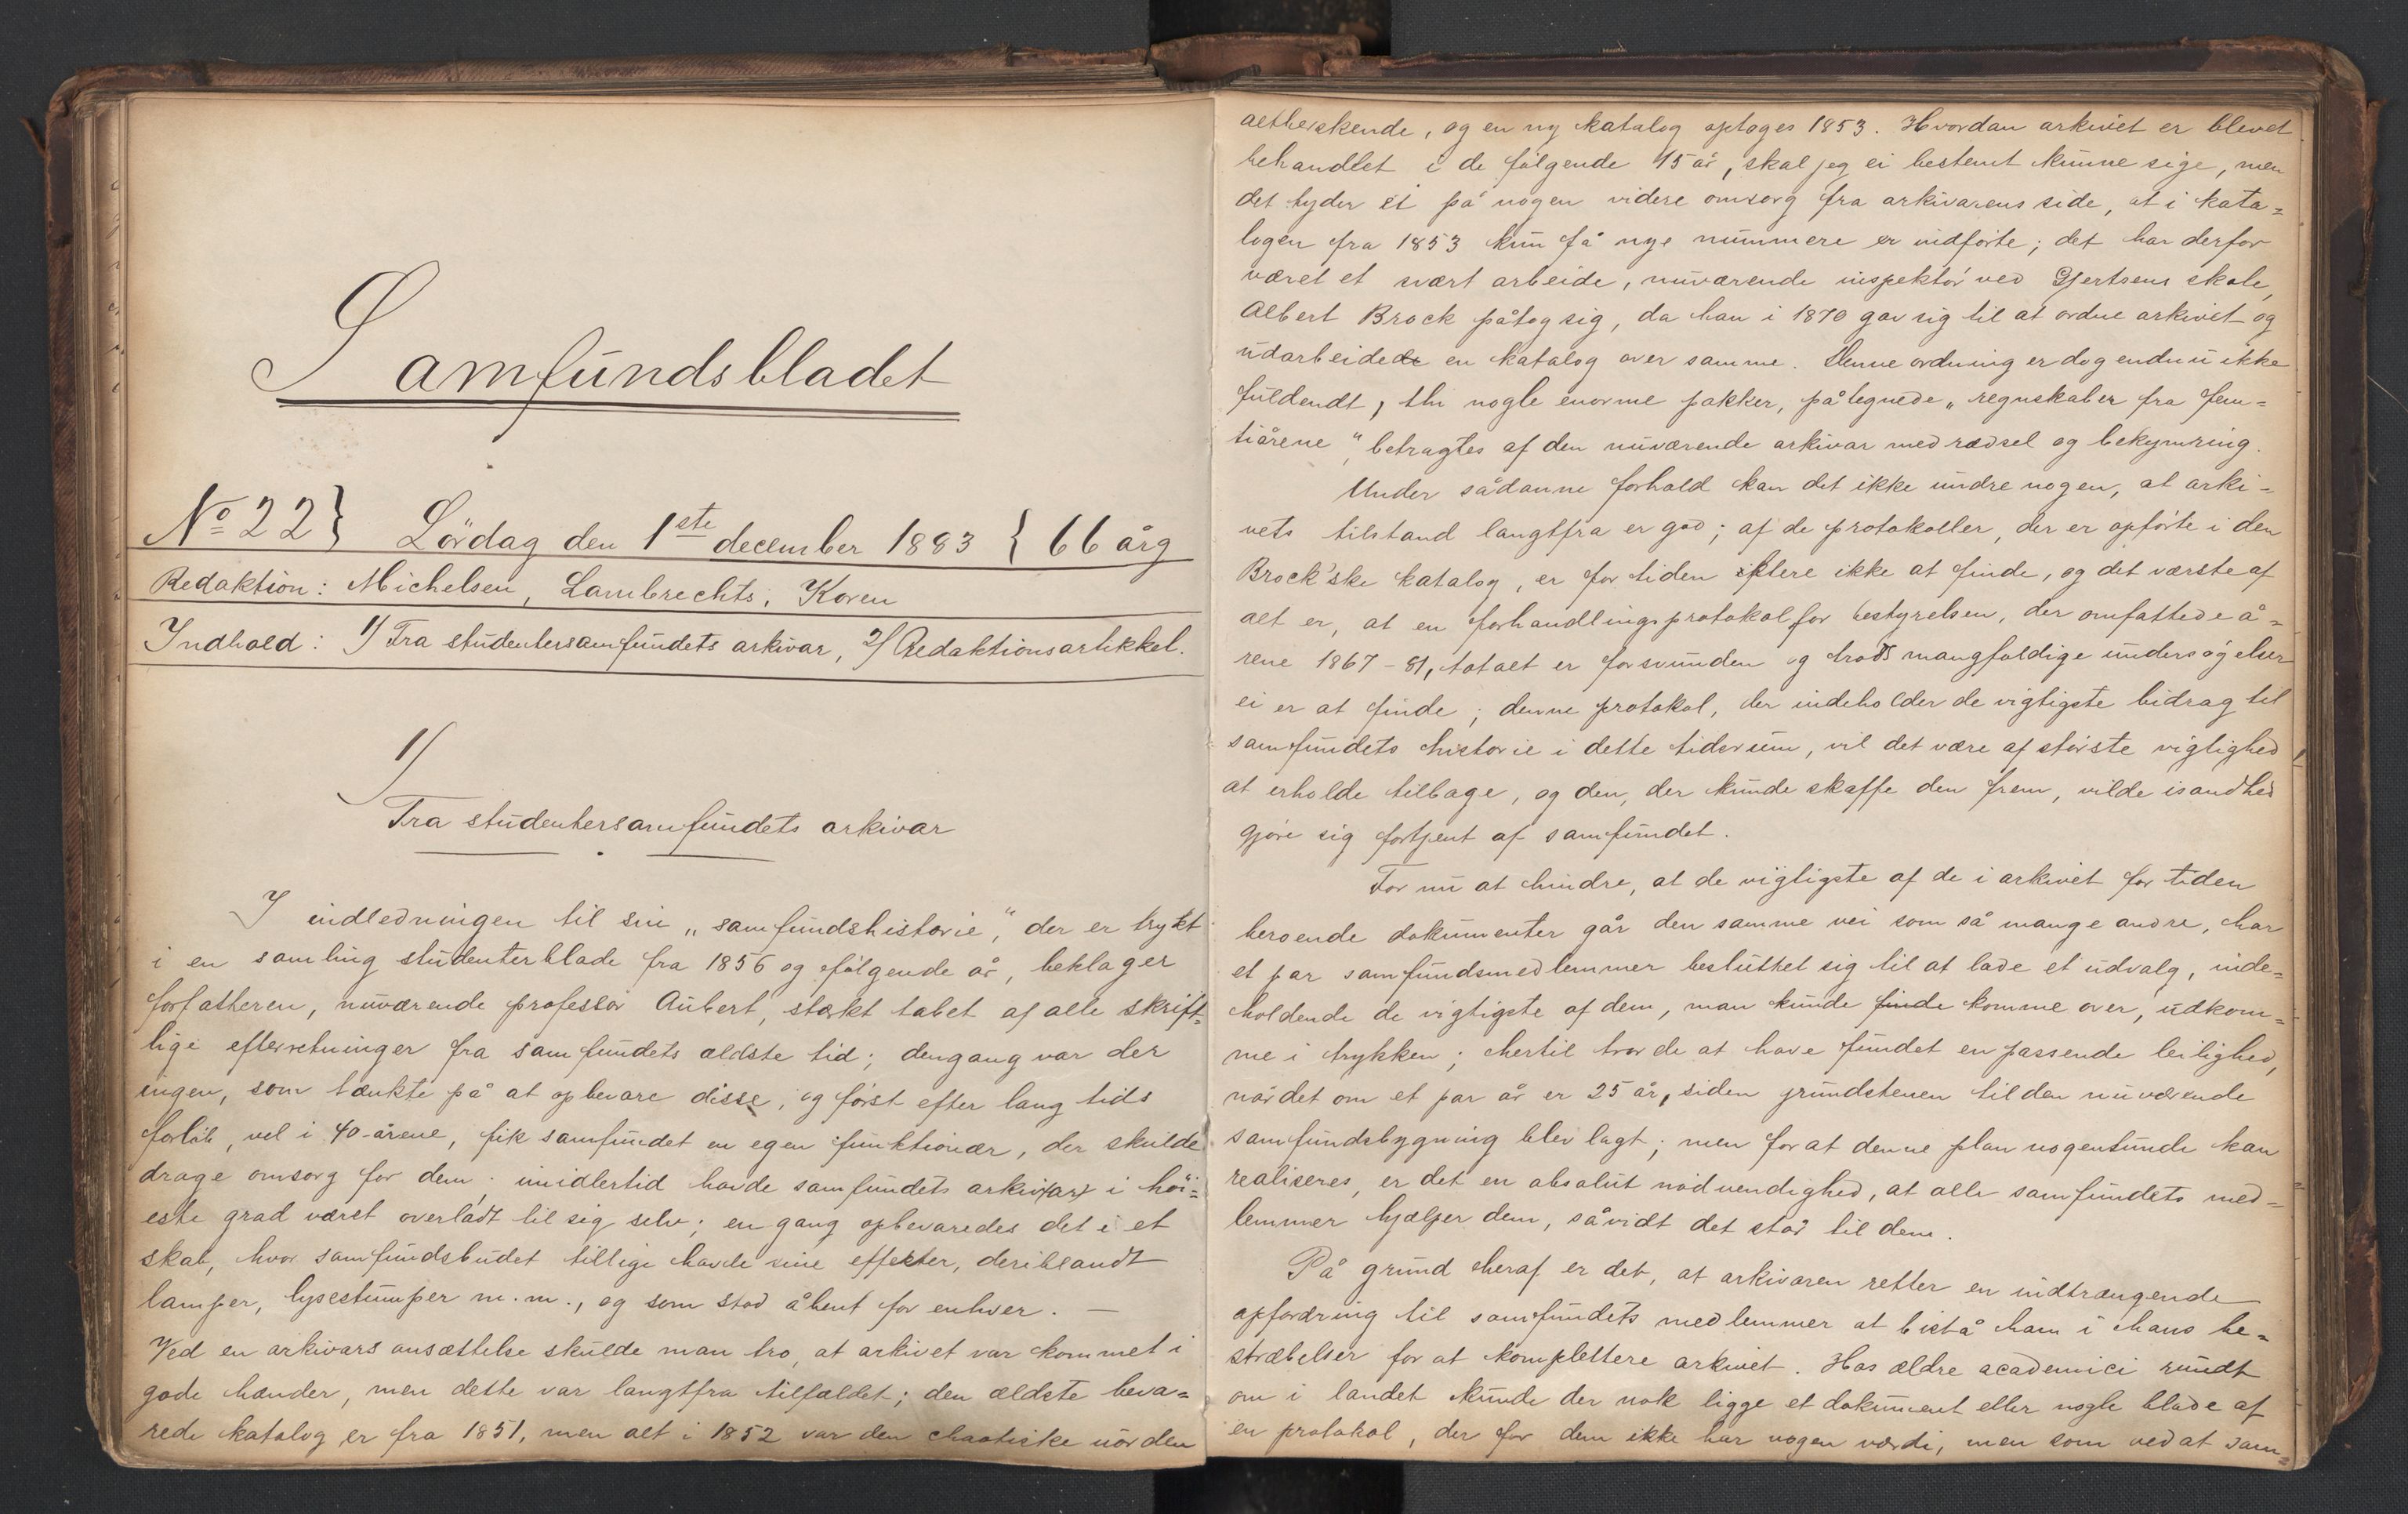 Samfundsbladet
No 22} Lördag den 1ste december 1883 {66 årg
Redaktion: Michelsen, Lambrechts, Koren
Indhold: 1/ Fra studentersamfundets arkivar, 2/ Redaktionsartikkel.
1/
Fra studentersamfundets arkivar
I indledningen til sin „samfundshistorie", der er trykt
i en samling studenterblade fra 1856 og følgende år, beklager
forfatteren, nuværende professor Aubert, stærkt tabet af alle skrift-
lige efterretninger fra samfundets ældste tid; dengang var der
ingen, som tænkte på at opbevare disse, og først efter lang tids
forløb, vel i 40-årene, fik samfundet en egen funktionær, der skulde
drage omsorg for dem; imidlertid havde samfundets arkiv i höi=
este grad været overladt til sig selv; en gang opbevaredes det i et
skab, hvor samfundsbudet tillige havde sine effekter, deriblandt
lamper, lysestumper m.m., og som stod åbent for enhver. —
Ved en arkivars ansættelse skulde man tro, at arkivet var kommet i
gode hænder, men dette var langtfra tilfældet; den ældste beva=
rede katalog er fra 1851, men alt i 1852 var den chaotiske uorden
altherskende, og en ny katalog optoges 1853. Hvordan arkivet er blevet
behandlet i de følgende 15 år, skal jeg ei bestemt kunne sige, men
det tyder ei på nogen videre omsorg fra arkivarens side, at i kata=
logen fra 1853 kun få nye nummere er indførte; det har derfor
været et svært arbeide, nuværende inspektör ved Gjertsens skole,
Albert Brock påtog sig, da han i 1870 gav sig til at ordne arkivet og
udarbeidede en katalog over samme. Denne ordning er dog endnu ikke
fuldendt, thi nogle enorme pakker, påtegnede „regnskaber fra fem=
tiårene", betragtes af den nuværende arkivar med rædsel og bekymring.
Under sådanne forhold kan det ikke undre nogen, at arki-
vets tilstand langtfra er god; af de protokoller, der er opførte i den
Brock'ske katalog, er for tiden flere ikke at finde, og det værste af
alt er, at en forhandlingsprotokol for bestyrelsen, der omfattede å=
rene 1867-81, totalt er forsvunden og trods mangfoldige undersøgelser
ei er at finde; denne protokol, der indeholder de vigtigste bidrag til
samfundets historie i dette tidsrum, vil det være af største vigtighed
at erholde tilbage, og den, der kunde skaffe den frem, vilde isandhed
gjøre sig fortjent af samfundet.
For nu at hindre, at de vigtigste af de i arkivet for tiden
beroende dokumenter går den samme vei som så mange andre, har
et par samfundsmedlemmer besluttet sig til at lade et udvalg, inde=
holdende de vigtigste af dem, man kunde finde komme over, udkom=
me i trykken; hertil tror de at have fundet en passende leilighed,
når det om et par år er 25 år, siden grundstenen til den nuværende
samfundsbygning blev lagt; men for at denne plan nogensinde kan
realiseres, er det en absolut nødvendighed, at alle samfundets med=
lemmer hjælper dem, såvidt det står til dem.
På grund heraf er det, at arkivaren retter en indtrængende
opfordring til samfundets medlemmer at bistå ham i hans be=
stræbelser for at komplettere arkivet. Hos ældre academici rundt
om i landet kunde der nok ligge et dokument eller nogle blade af
en protokol, der for dem ikke har nogen værdi, men som ved at sam=